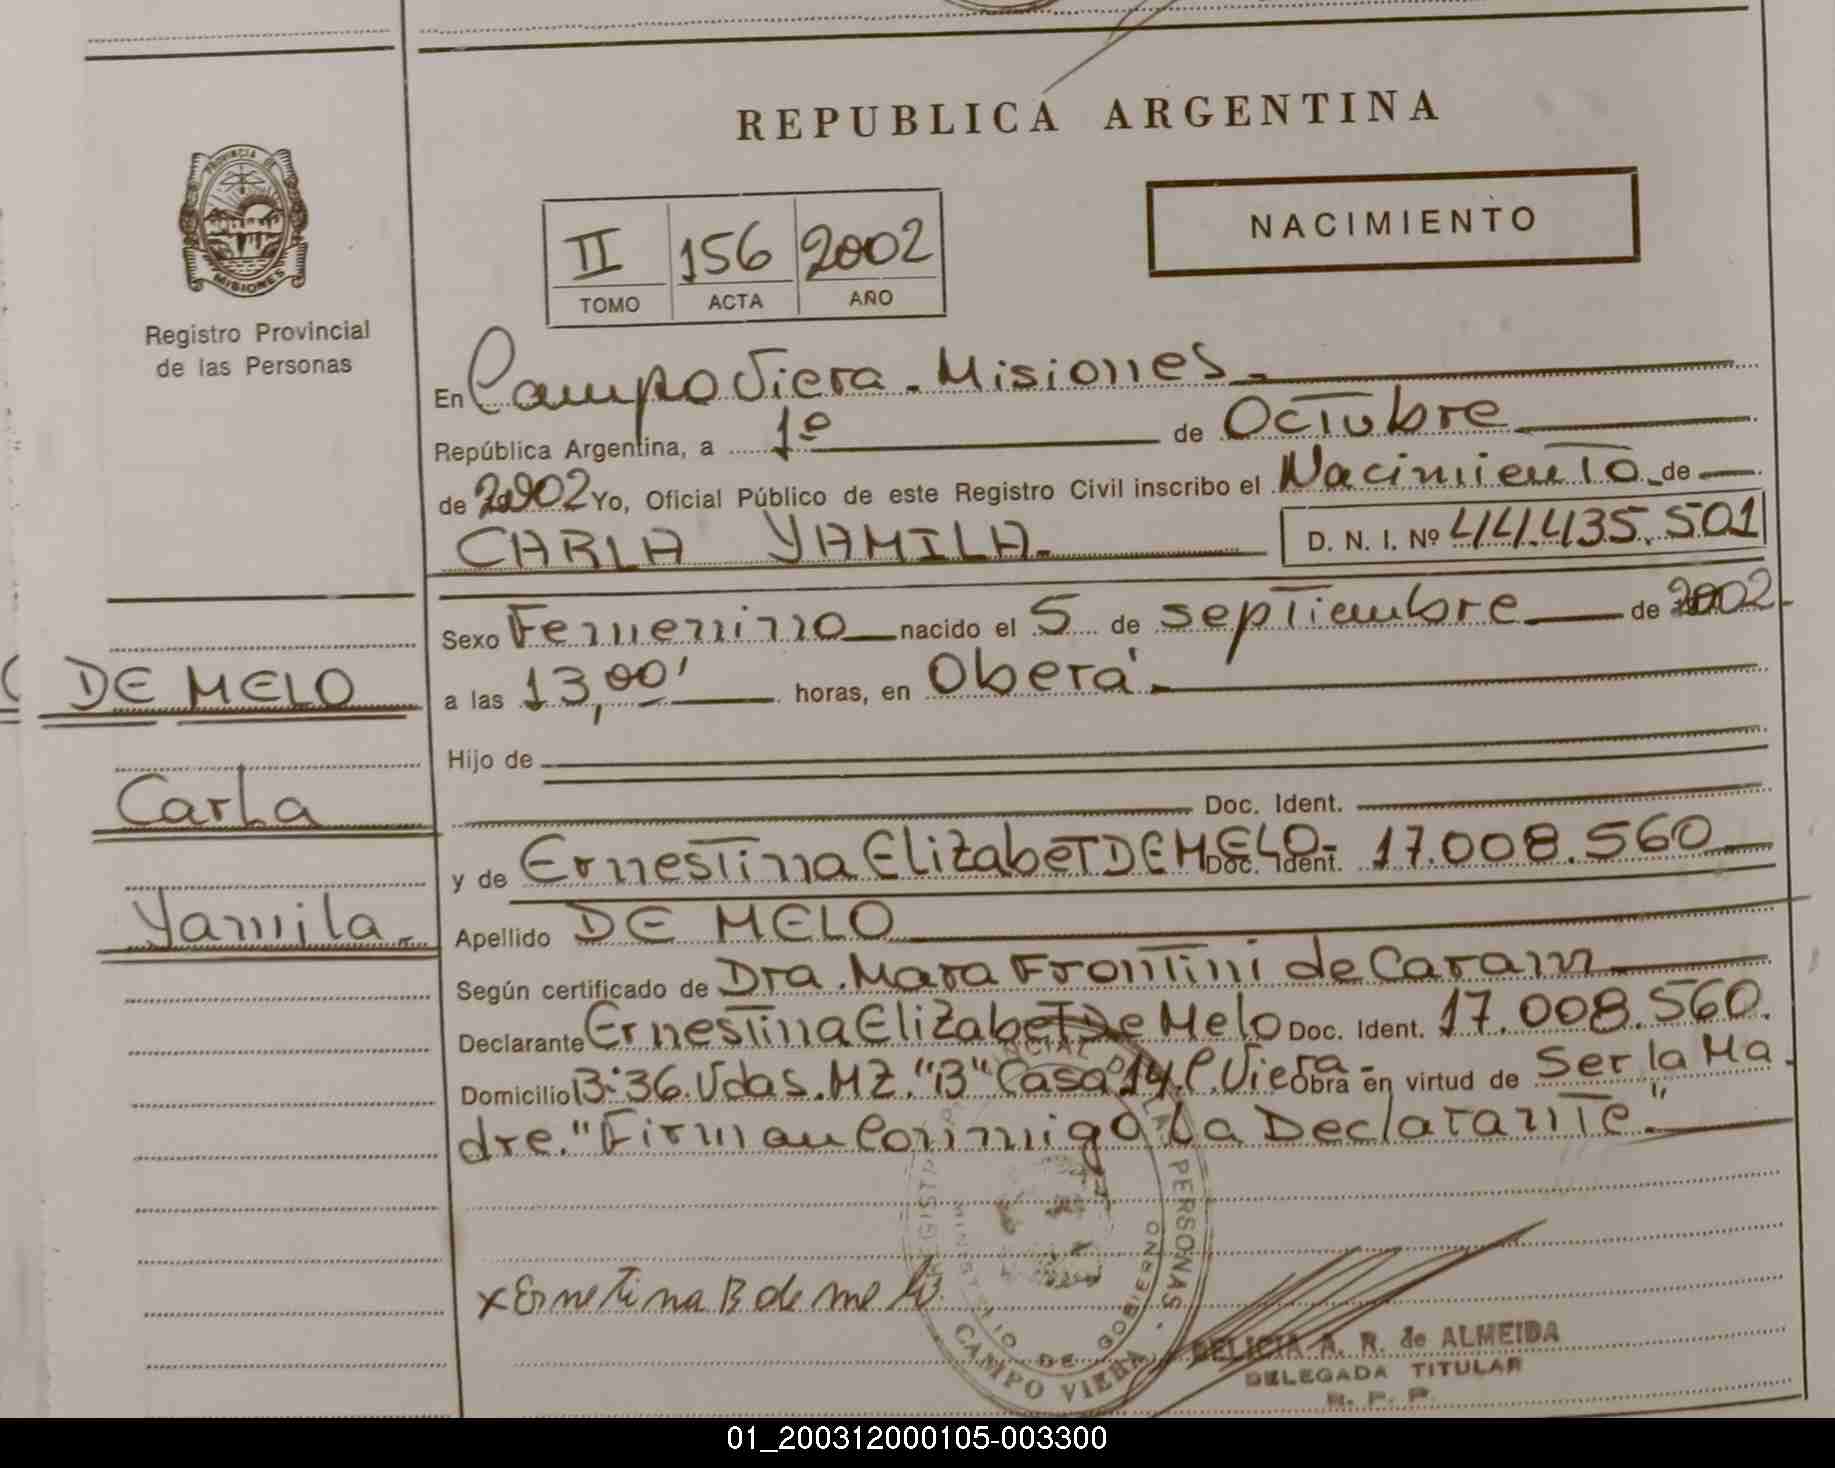 REPUBLICA ARGENTINA
PROVINCIA DE
MISIONES
Registro Provincial
de las Personas
NACIMIENTO
II 156 2002
TOMO ACTA AÑO
En Campo Viera - Misiones.
República Argentina, a 1º de Octubre
de 2002 Yo, Oficial Público de este Registro Civil inscribo el Nacimiento de
CARLA YAMILA. D. N. I. Nº 44.435.501
Sexo Femenino nacido el 5 de septiembre de 2002
DE MELO
a las 13,00' horas, en Oberá.
Hijo de
Carla
Doc. Ident.
y de Ernestina Elizabet DE MELO- Doc. Ident. 17.008.560
Yamila.
Apellido DE MELO
Según certificado de Dra. Mara Frontini de Caram
Declarante Ernestina Elizabet De Melo Doc. Ident. 17.008.560.
Domicilio Bº 36. Vdas. MZ. "B" Casa 14. C. Viera - Obra en virtud de Ser la Ma
dre. "Firman Conmigo La Declarante."
x Ernetina B de melo
PERSONAS
MINISTERIO DE GOBIERNO
CAMPO VIERA
DELICIA A. R. de ALMEIDA
DELEGADA TITULAR
R. P. P.
01_200312000105-003300